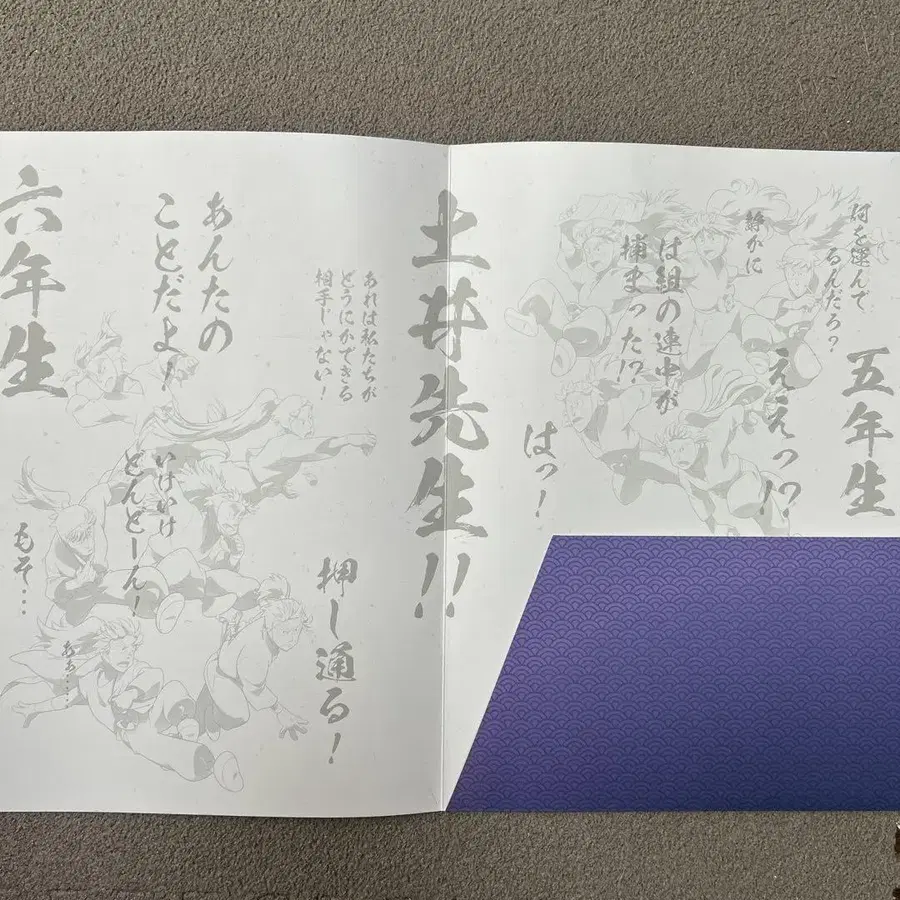 何を運んで
るんだろ？
五年生
静かに
ええっ！？
は組の連中が
捕まった！？
はっ！
土井先生！！
あれは私たちが
どうにかできる
相手じゃない！
押し通る！
あんたの
ことだよ！
いけいけ
どんどーん！
六年生
もそ…
ああ……